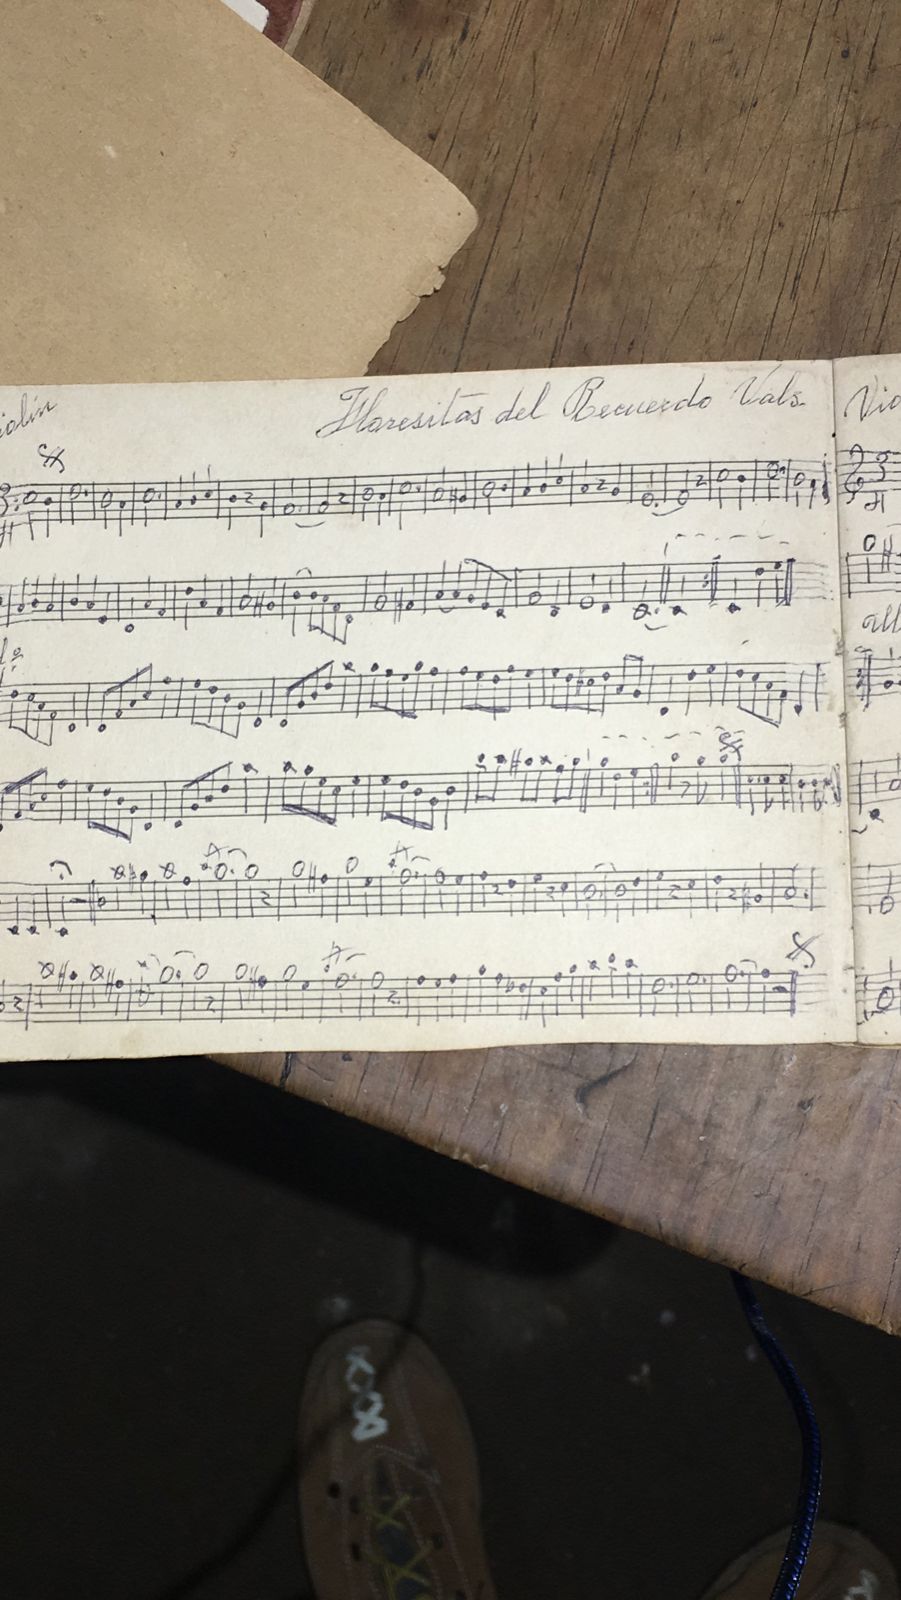 iolín
Floresitas del Recuerdo Vals.
Vio
all